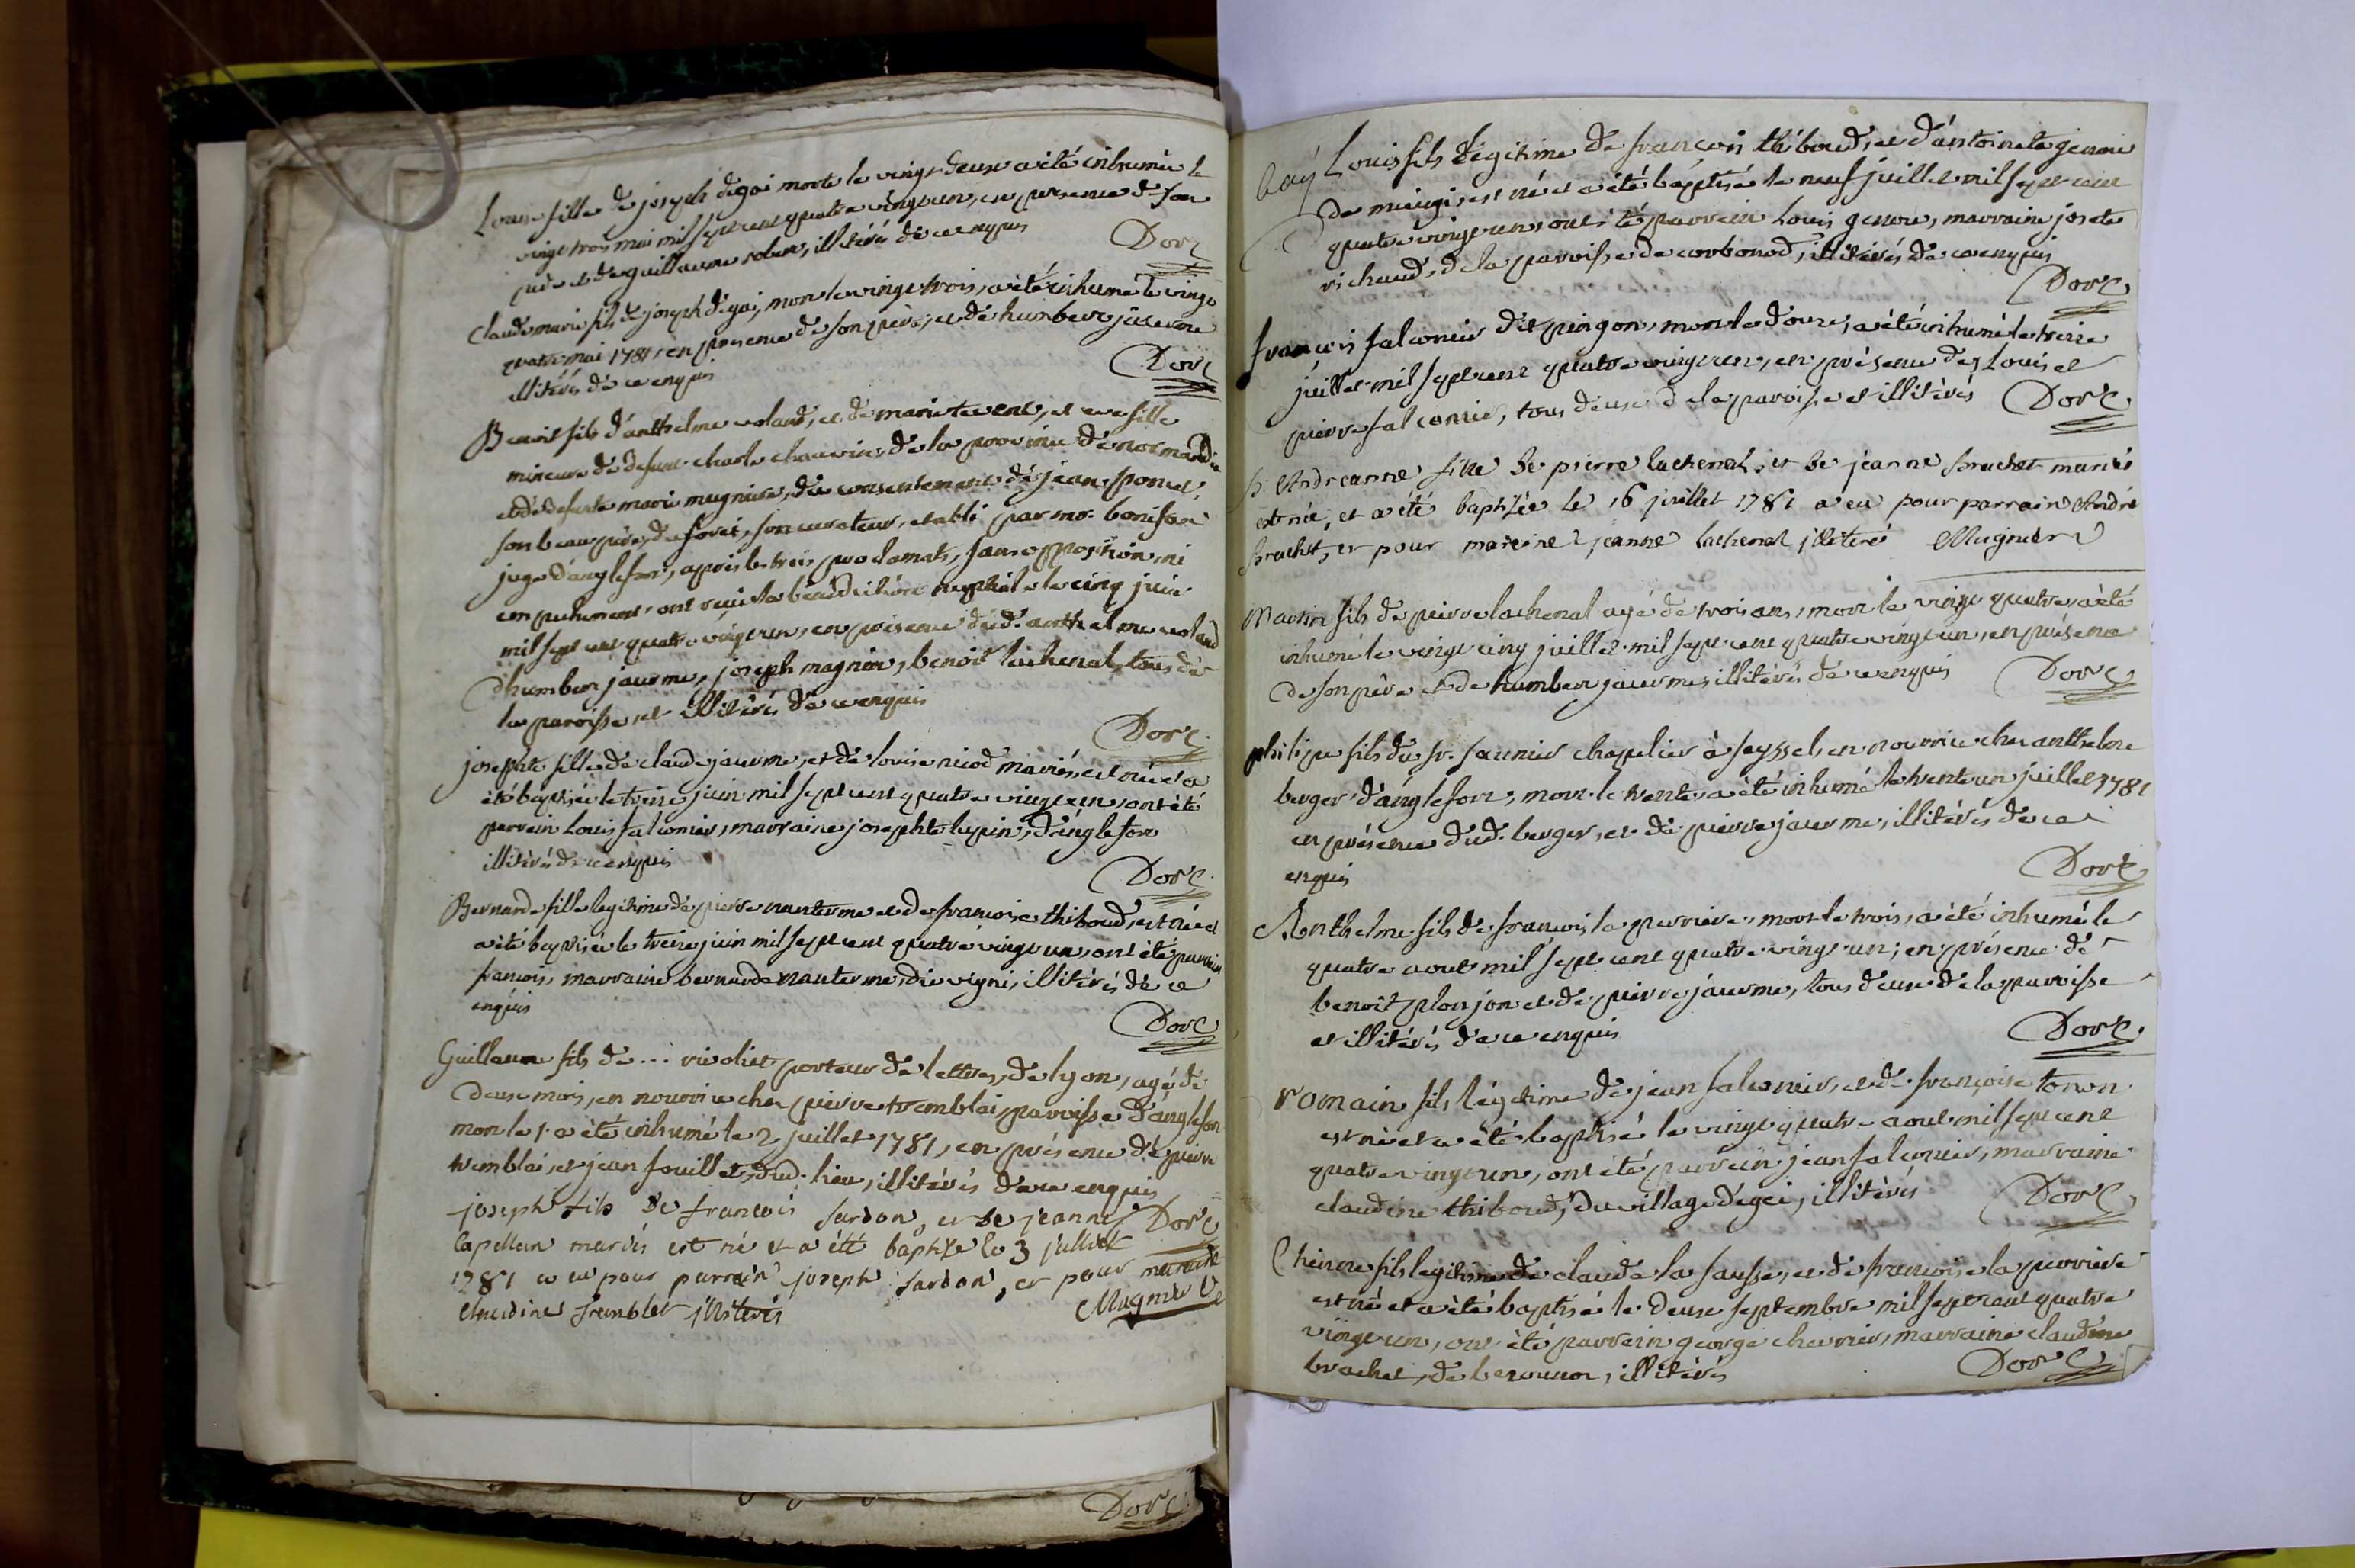 Louise fille de joseph degoi morte le vingt deux a été inhumée le
vingt trois mai mil sept cent quatre vingt un, en presence de son
père et de guillaume, illitérés de ce enquis
Dorc
Claude marie fils de joseph degoi, mort le vingt trois, a été inhumé le vingt
quatre mai 1781, en presence de son père, et de humbert jaurme
illitérés de ce enquis
Dorc
Benoit fils d'anthelme voland, et de marie, et eve fille
mineure de defunt charle chauvin, de la province de normandie
et de defunte marie mugnier, du consentement de jean poncet,
son beau père, du forei, son curateur, etabli par mr. bonifax
juge d'anglefort, après les trois proclamats, sans opposition, ni
empechement ont reçu la bénédiction nuptiale le cinq juin
mil sept cent quatre vingt un, en présence dud. anthelme voland
d'humbert jaurme, joseph magnin, benoit lachenal, tous de
la paroisse, et illitérés de ce enquis
Dorc
josephte fille de claude jaurme, et de louise niod mariés, est née et a
été baptisée le treize juin mil sept cent quatre vingt un, ont été
parrain Louis falconier, marraine josephte lupin, d'anglefort
illitérés de ce enquis
Dorc
Bernarde fille legitime de pierre nanterme et de francoise thiboud, est née et
a été baptisée le treize juin mil sept cent quatre vingt un, ont été parrain
francois, marraine bernarde nanterme, illitérés de ce
enquis
Dorc
Guillaume fils de ... violiet porteur de lettres, de lyon, agé de
deux mois, en nourrice chez pierre tremblai, paroisse d'anglefort
mort le 1. a été inhumé le 2 juillet 1781, en présence de pierre
tremblai, et jean fouillet, dud. lieu, illitérés de ce enquis
Dorc
joseph fils de francois fardon, et de jeanne
Capellan mariés est né et a été baptisé le 3 juillet
1781 a eu pour parrain joseph fardon, et pour marraine
Claudine tremblet illiterés
Mugnier Ve
bay Louis fils légitime de françois thiboud, et d'antoinete genoie
de mieugi, est né et a été baptisé le neuf juillet mil sept cent
quatre vingt un, ont été parrain Louis genoie, marraine josete
richaud, de la paroisse de corbonod, illitérés de ce enquis
Dorc
francois falconier dit pingon, mort le douze, a été inhumé le treize
juillet mil sept cent quatre vingt un, en présence des Louis et
pierre falconier, tous deux de la paroisse et illitérés
Dorc
b. Andreanne fille de pierre lachenal, et de jeanne brachet mariés
est née, et a été baptisée le 16 juillet 1781 a eu pour parrain André
brachet, et pour mareine jeanne lachenal illeteré Mugnier
Martin fils de pierre lachenal agé de trois ans, mort le vingt quatre, a été
inhumé le vingt cinq juillet mil sept cent quatre vingt un, en présence
de son père et de humbert jaurme, illitérés de ce enquis
Dorc
philipe fils du sr. saunier chapelier à seyssel en nourrice chez anthelme
berger d'anglefort, mort le trente, a été inhumé le trente un juillet 1781
en présence dud. berger, et de pierre jaurme, illitérés de ce
enquis
Dorc
Anthelme fils de francois la perriere, mort le trois, a été inhumé le
quatre aout mil sept cent quatre vingt un; en présence de
benoit plonjon et de pierre jaurme, tous deux de la paroisse
et illitérés de ce enquis
Dorc
romain fils légitime de jean falconier, et de françoise
est né et a été baptisé le vingt quatre aout mil sept cent
quatre vingt un, ont été parrain jean falconier, marraine
claudine thiboud, du village d'egei, illitérés
Dorc
Etienne fils legitime de claude la fausse, et de francoise la perriere
est né et a été baptisé le deux septembre mil sept cent quatre
vingt un, ont été parrain george chevrier, marraine claudine
brachet, de bezounon, illitérés
Dorc
Dorc